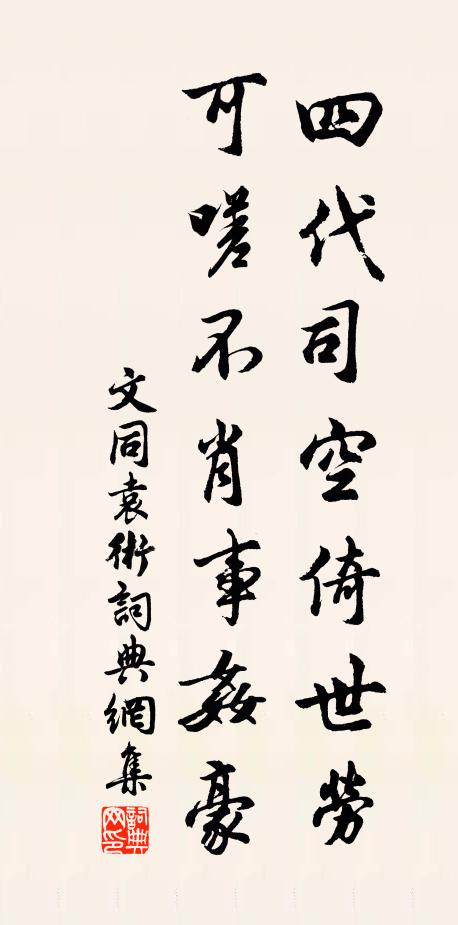 四代司空倚世勞
可嗟不肖事姦豪
文同袁術詞典網集
詞典網印